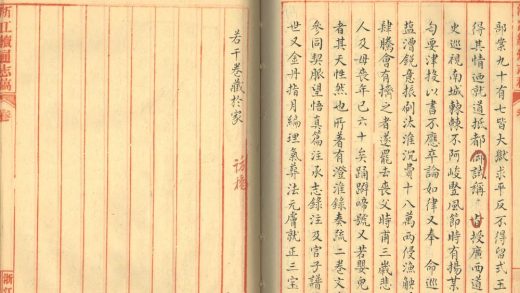 部案九十有七皆大獄求平反不得留弍王
得其情廼就道抵都御試稱旨授廣西道
史巡視南城棘棘不阿峻豎風節時有揚某
勾要津投以書不應卒論如律又奉 命巡
鹽漕銳意振刷汰淮沉費十八萬兩侵漁觖
肆騰會有擠之者遂罷去喪父時甫三歲悲
人及母喪年已六十矣踊躃啼號又若嬰兒
者其天性然也所著有澄淮錄奏疏二卷文
參同契脈望悟真篇注承志錄注及官子譜
世又金丹指月編理氣葬法元膚就正三宝
若干卷藏於家
訪稿
浙江續通志稿
卷
浙江